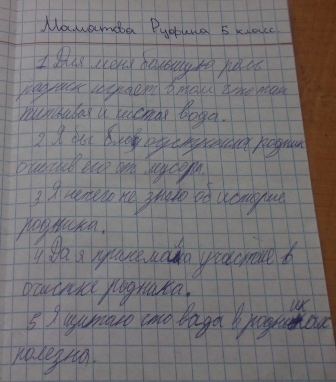 Маматова Руфина 5 класс
1 Для меня большую роль
родник играет в том что там
питьевая и чистая вода.
2 Я бы благоустроила родник
очистив его от мусора.
3 Я нечего не знаю об историе
родника.
4 Да я принемала участие в
очистке родника.
5 Я щитаю сто вода в родниках
полезна.